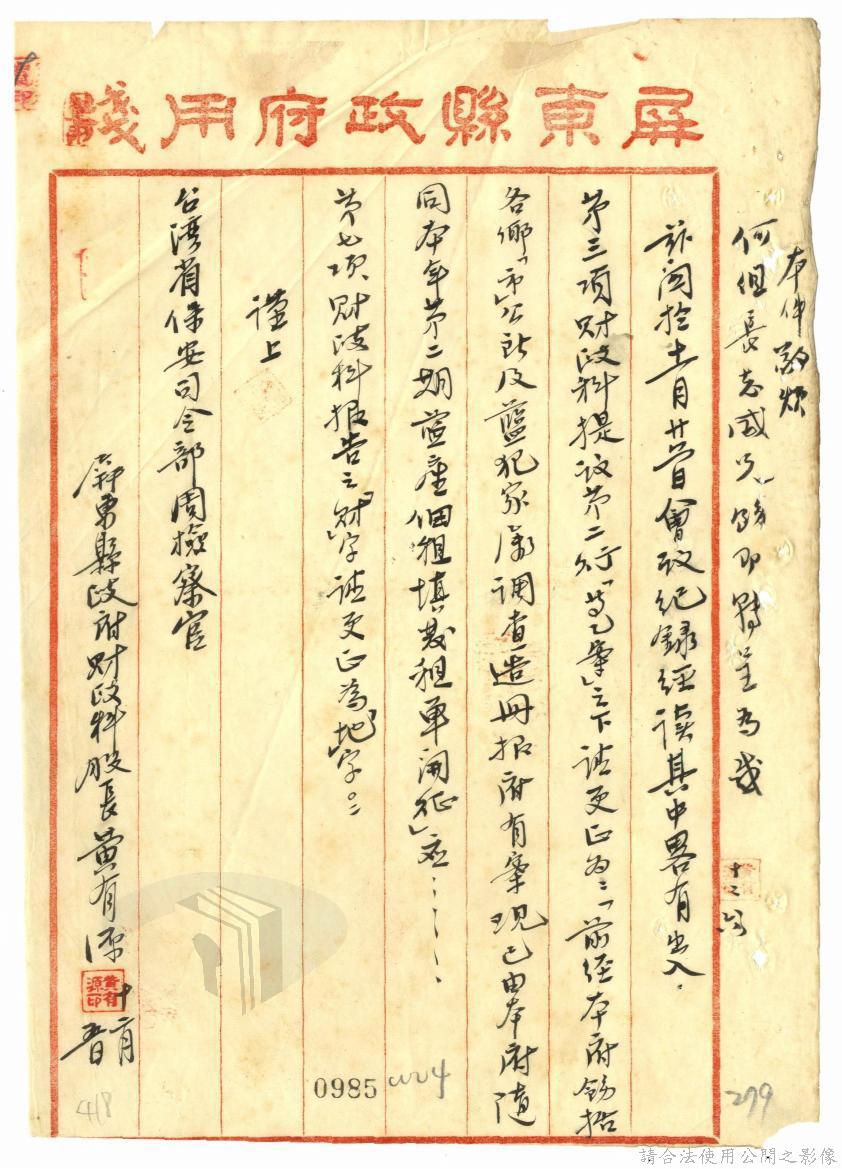 屏東縣政府用箋
本件敬煩
何組長志威兄 即轉呈為感
十二
茲閱於十一月廿 日會議紀錄經讀其中略有出入.
第三項財政科提議第二行「 」之下請更正為:「前經本府飭据
各鄉「市」公所及 犯家 調查造冊報府有案現已由本府隨
同本年第二期 產佃租填發租單開征」 ......
第七項財政科報告之「財」字請更正為「地」字。
謹上
台灣省保安司令部周檢察官
屏東縣政府財政科股長黃有源
黃有源印
十二月 日
0985
418
299
請合法使用公開之影像